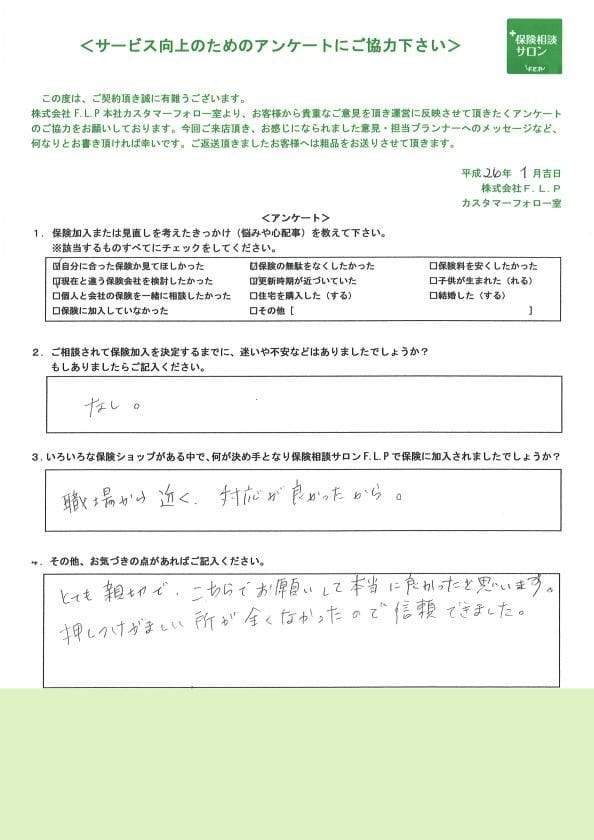 ＜サービス向上のためのアンケートにご協力下さい＞
保険相談
サロン
F.L.P
この度は、ご契約頂き誠に有難うございます。
株式会社F.L.P本社カスタマーフォロー室より、お客様から貴重なご意見を頂き運営に反映させて頂きたくアンケート
のご協力をお願いしております。今回ご来店頂き、お感じになられました意見・担当プランナーへのメッセージなど、
何なりとお書き頂ければ幸いです。ご返送頂きましたお客様へは粗品をお送りさせて頂きます。
平成26年 1月吉日
株式会社F.L.P
カスタマーフォロー室
＜アンケート＞
1．保険加入または見直しを考えたきっかけ（悩みや心配事）を教えて下さい。
※該当するものすべてにチェックをしてください。
☑自分に合った保険か見てほしかった ☑保険の無駄をなくしたかった □保険料を安くしたかった
☑現在と違う保険会社を検討したかった ☑更新時期が近づいていた □子供が生まれた（れる）
□個人と会社の保険を一緒に相談したかった □住宅を購入した（する） □結婚した（する）
□保険に加入していなかった □その他［ ］
2．ご相談されて保険加入を決定するまでに、迷いや不安などはありましたでしょうか？
もしありましたらご記入ください。
なし。
3.いろいろな保険ショップがある中で、何が決め手となり保険相談サロンF.L.Pで保険に加入されましたでしょうか？
職場から近く、対応が良かったから。
4．その他、お気づきの点があればご記入ください。
とても親切で、こちらでお願いして本当に良かったと思います。
押しつけがましい所が全くなかったので信頼できました。